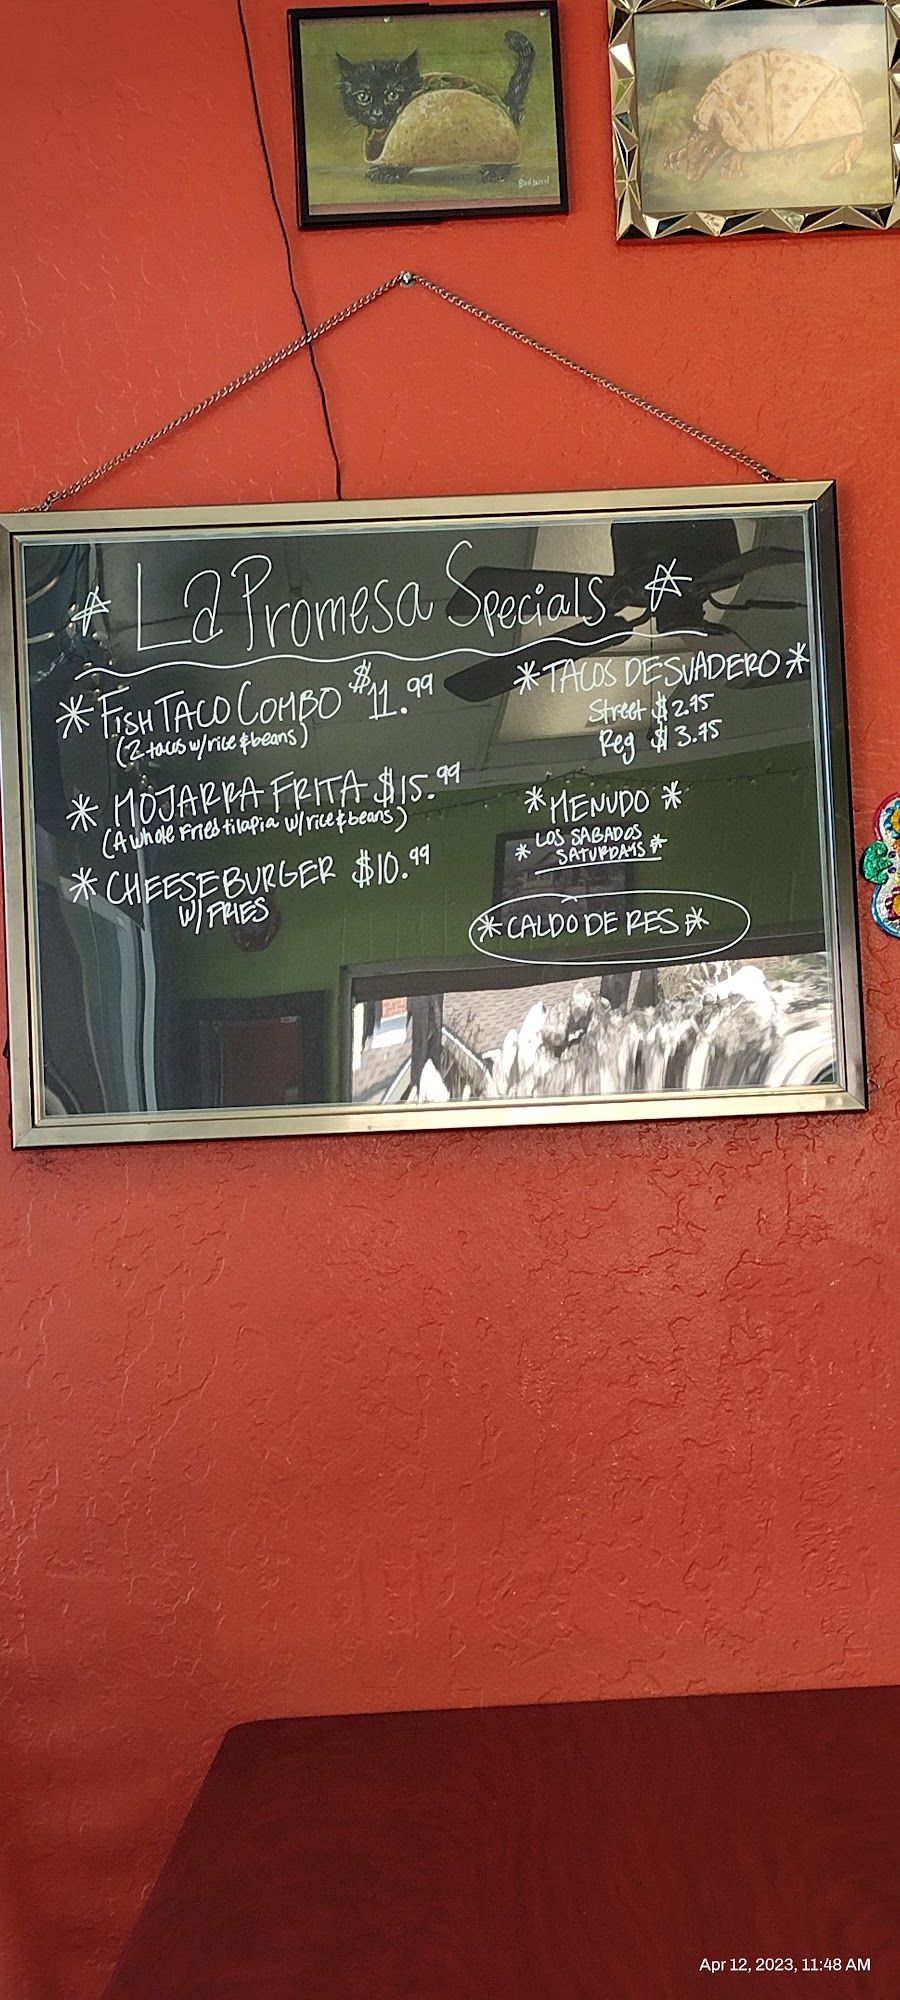 ☆ La Promesa Specials ☆
* FISH TACO COMBO $11.99
(2 tacos w/rice & beans)
* MOJARRA FRITA $15.99
(A whole Fried tilapia w/rice & beans)
* CHEESEBURGER $10.99
W/ FRIES
* TACOS DE SUADERO *
Street $2.75
Reg $3.75
* MENUDO *
* LOS SABADOS
SATURDAYS *
* CALDO DE RES *
Apr 12, 2023, 11:48 AM